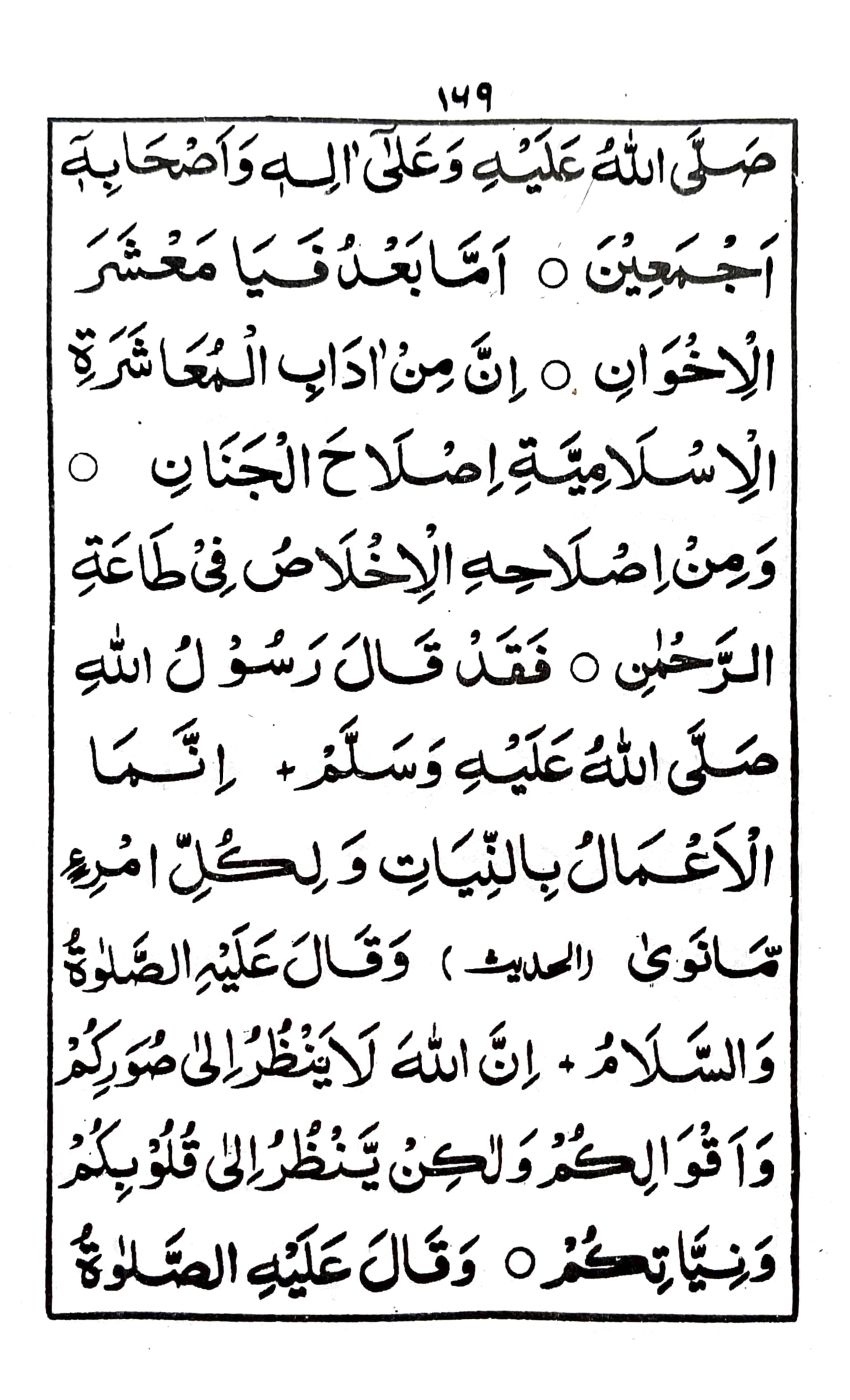 ١٤٩
صَلَّى اللهُ عَلَيْهِ وَعَلٰٓى اٰلِهٖ وَاَصْحَابِهٖٓ
اَجْمَعِيْنَ ○ اَمَّا بَعْدُ فَيَا مَعْشَرَ
الْاِخْوَانِ ○ اِنَّ مِنْ اٰدَابِ الْمُعَاشَرَةِ
الْاِسْلَامِيَّةِ اِصْلَاحَ الْجَنَانِ ○
وَمِنْ اِصْلَاحِهِ الْاِخْلَاصُ فِىْ طَاعَةِ
الرَّحْمٰنِ ○ فَقَدْ قَالَ رَسُوْلُ اللهِ
صَلَّى اللهُ عَلَيْهِ وَسَلَّمْ + اِنَّمَا
الْاَعْمَالُ بِالنِّيَاتِ وَلِكُلِّ امْرِءٍ
مَّانَوىٰ (الحديث) وَقَالَ عَلَيْهِ الصَّلٰوةُ
وَالسَّلَامُ + اِنَّ اللهَ لَا يَنْظُرُ اِلىٰ صُوَرِكُمْ
وَاَقْوَالِكُمْ وَلٰكِنْ يَّنْظُرُ اِلىٰ قُلُوْبِكُمْ
وَنِيَّاتِكُمْ ○ وَقَالَ عَلَيْهِ الصَّلٰوةُ